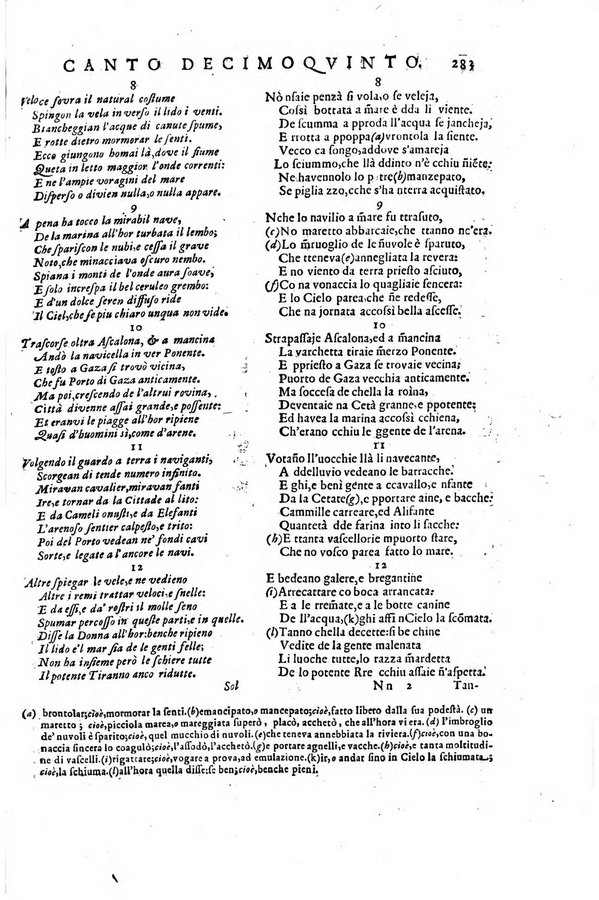 CANTO DECIMOQVINTO. 283
8
Veloce sovra il natural costume
Spingon la vela in verso il lido i venti.
Biancheggian l'acque di canute spume,
E rotte dietro mormorar le senti.
Ecco giungono homai là,dove il fiume
Queta in letto maggior l'onde correnti:
E ne l'ampie voragini del mare
Disperso o divien nulla,o nulla appare.
9
A pena ha tocco la mirabil nave,
De la marina all'hor turbata il lembo;
Che sparison le nubi,e cessa il grave
Noto,che minacciava oscuro nembo.
Spiana i monti de l'onde aura soave,
E solo increspa il bel ceruleo grembo:
E d'un dolce seren diffuso ride
Il Ciel,che se piu chiaro unqua non vide.
10
Trascorse oltra Ascalona, & a mancina
Andò la navicella in ver Ponente.
E tosto a Gaza si trovò vicina,
Che fu Porto di Gaza anticamente.
Ma poi,crescendo de l'altrui rovina,
Città divenne assai grande,e possente:
Et eranvi le piagge all'hor ripiene
Quasi d'huomini sì,come d'arene.
11
Volgendo il guardo a terra i naviganti,
Scorgean di tende numero infinito.
Miravan cavalier,miravan fanti
Ire,e tornar da la Cittade al lito:
E da Cameli onusti,e da Elefanti
L'arenoso sentier calpesto,e trito:
Poi del Porto vedean ne' fondi cavi
Sorte,e legate a l'ancore le navi.
12
Altre spiegar le vele,e ne vedieno
Altre i remi trattar veloci,e snelle:
E da essi,e da' rostri il molle seno
Spumar percosso in queste parti,e in quelle.
Disse la Donna all'hor:benche ripieno
Il lido e'l mar sia de le genti felle;
Non ha insieme però le schiere tutte
Il potente Tiranno anco ridutte.
Sol
8
Nò nsaie penzà si vola,o se veleja,
Cossì bottata a m̃are è dda li viente.
De scumma a pproda ll'acqua se jancheja,
E rrotta a ppoppa(a)vrontola la siente.
Vecco ca songo,addove s'amareja
Lo sciummo,che llà ddinto n'è cchiu ñiẽte:
Ne havennolo lo p tre(b)manzepato,
Se piglia zzo,cche s'ha nterra acquistato.
9
Nche lo navilio a m̃are fu ttrasuto,
(c)No maretto abbarcaie,che ttanno ne'era.
(d)Lo m̃ruoglio de le ñuvole è sparuto,
Che tteneva(e)annegliata la revera:
E no viento da terra priesto asciuto,
(f)Co na vonaccia lo quagliaie sencera:
E lo Cielo parea,che ñe redesse,
Che na jornata accossì bella ascesse.
10
Strapassaje Ascalona,ed a m̃ancina
La varchetta tiraie m̃erzo Ponente.
E ppriesto a Gaza se trovaie vecina;
Puorto de Gaza vecchia anticamente.
Ma soccesa de chella la roina,
Deventaie na Cetà granne,e ppotente;
Ed havea la marina accossì cchiena,
Ch'erano cchiu le ggente de l'arena.
11
Votaño ll'uocchie llà li navecante,
A ddelluvio vedeano le barracche.
E ghì,e beni gente a ccavallo,e nfante
Da la Cetate(g),e pportare aine, e bacche:
Cammille carreare,ed Alifante
Quantetà dde farina into li sacche:
(h)E ttanta vascellorie mpuorto stare,
Che no vosco parea fatto lo mare.
12
E bedeano galere,e bregantine
(i)Arrecattare co boca arrancata:
E a le rrem̃ate,e a le botte canine
De ll'acqua,(k)ghì affi nCielo la scõmata.
(l)Tanno chella decette:si be chine
Vedite de la gente malenata
Li luoche tutte,lo razza m̃ardetta
De lo potente Rre cchiu assaie ñ'aspetta.
Nn 2 Tan-
(a) brontolar;cioè,mormorar la senti.(b)emancipato,o manceptato;cioè,fatto libero dalla sua podestà.(c) un
maretto; cioè,picciola marea,o mareggiata superò, placò, acchetò, che all'hora vi era. (d) l'imbroglio
de' nuvoli è sparito;cioè,quel mucchio di nuvoli.(e)che teneva annebbiata la riviera.(f)cioè,con una bo-
naccia sincera lo coagulò;cioè,l'assodò,l'acchetò.(g)e portare agnelli,e vacche.(h)cioè,e tanta moltitudi-
ne di vascelli.(i)rigattare;cioè,vogare a prova,ad emulazione.(k)ir, o andar sino in Cielo la schiumata;
cioè,la schiuma.(l)all'hora quella disse:se ben;cioè,benche pieni.